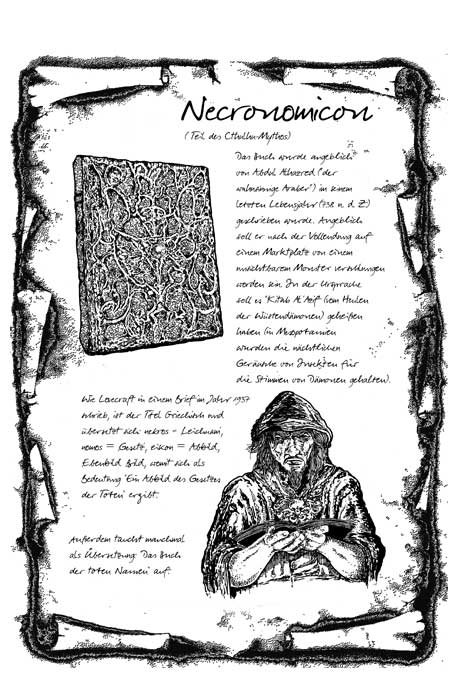 Necronomicon
(Teil des Cthulhu-Mythos)
Das Buch wurde angeblich
von Abdul Alhazred ('der
wahnsinnige Araber') in seinem
letzten Lebensjahr (738 n. d. Z.)
geschrieben wurde. Angeblich
soll er nach der Vollendung auf
einem Marktplatz von einem
unsichtbarem Monster verschlungen
worden sein. In der Ursprache
soll es 'Kitab Al'Azif' (dem Heulen
der Wüstendämonen) geheißen
haben (in Mesopotamien
wurden die nächtlichen
Geräusche von Insekten für
die Stimmen von Dämonen gehalten).
Wie Lovecraft in einem Brief im Jahr 1937
schrieb, ist der Titel Griechisch und
übersetzt sich: nekros - Leichnam,
nomos = Gesetz, eikon = Abbild,
Ebenbild, Bild, womit sich als
Bedeutung 'Ein Abbild des Gesetzes
der Toten' ergibt.
Außerdem taucht manchmal
als Übersetzung 'Das Buch
der toten Namen' auf.